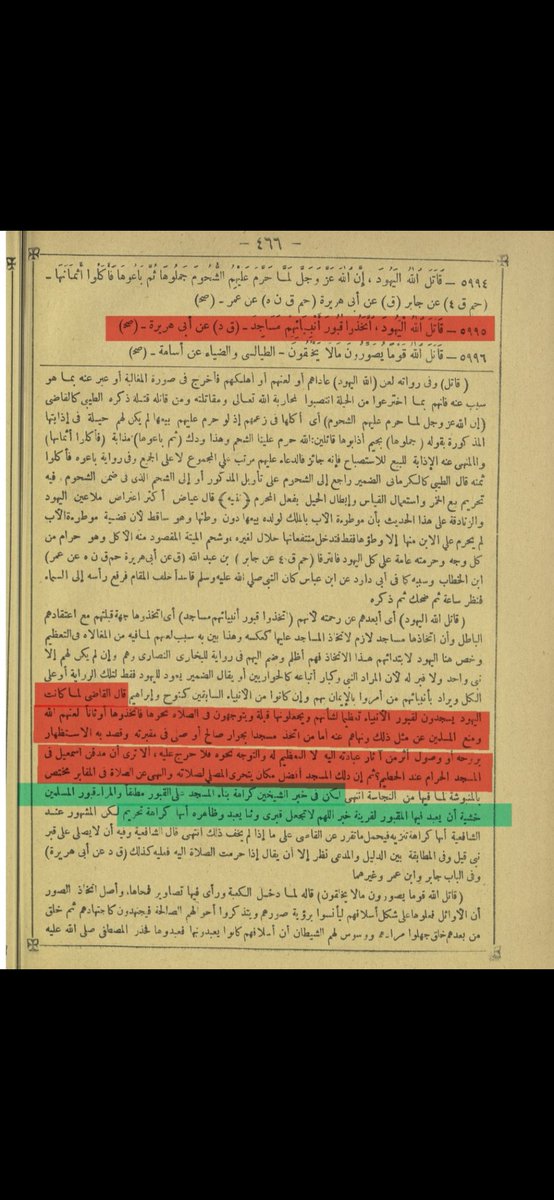 — ٤٦٦ —
٥٩٩٤ — قَاتَلَ اللهُ الْيَهُودَ ، إِنَّ اللهَ عَزَّ وَجَلَّ لَمَّا حَرَّمَ عَلَيْهِمُ الشُّحُومَ جَمَلُوهَا ثُمَّ بَاعُوهَا فَأَكَلُوا أَثْمَانَهَا -
(حم ق ٤) عن جابر (ق) عن أبى هريرة (حم ق ن ه) عن عمر - (صح)
٥٩٩٥ — قَاتَلَ اللهُ الْيَهُودَ ، اتَّخَذُوا قُبُورَ أَنْبِيَائِهِمْ مَسَاجِدَ - (ق د) عن أبى هريرة - (صح)
٥٩٩٦ — قَاتَلَ اللهُ قَوْمًا يُصَوِّرُونَ مَالَا يَخْلُقُونَ - الطيالسى والضياء عن أسامة - (صح)
(قاتل) وفى رواية لعن (الله اليهود) عاداهم أو لعنهم أو أهلكهم فأخرج فى صورة المغالبة أو عبر عنه بما هو
سبب عنه فانهم بما اخترعوا من الحيلة انتصبوا لمحاربة الله تعالى ومقاتلته ومن قاتله قتله ذكره الطيبى كالقاضى
(إن الله عز وجل لما حرم عليهم الشحوم) أى أكلها فى زعمهم إذ لو حرم عليهم بيعها لم يكن لهم حيلة فى إذابتها
المذكورة بقوله (جملوها) بجيم أذابوها قائلين: الله حرم علينا الشحم وهذا ودك (ثم باعوها) مذابة (فأكلوا أثمانها)
والمنهى عنه الإذابة للبيع للاستصباح فإنه جائز فالدعاء عليهم مرتب على المجموع لا على الجمع وفى رواية باعوه فأكلوا
ثمنه قال الطيبى كالكرمانى الضمير راجع إلى الشحوم على تأويل المذكور أو إلى الشحم الذى فى ضمن الشحوم ، فيه
تحريم بيع الخمر واستعمال القياس وإبطال الحيل بفعل المحرم (تنبيه) قال عياض أكثر اعتراض ملاعين اليهود
والزنادقة على هذا الحديث بأن موطوءة الأب بالملك لولده بيعها دون وطئها وهو ساقط لأن قضية موطوءة الأب
لم يحرم على الابن منها إلا وطؤها فقط فتدخل منتفعاتها حلال لغيره ، وشحم الميتة المقصود منه الأكل وهو حرام من
كل وجه وحرمته عامة على كل اليهود فافترقا (حم ق ٤ عن جابر) بن عبد الله (ق عن أبى هريرة حم ق ن ه عن عمر)
ابن الخطاب وسببه كما فى أبى دارد عن ابن عباس كان النبى صلى الله عليه وسلم قاعداً خلف المقام فرفع رأسه إلى السماء
فنظر ساعة ثم ضحك ثم ذكره
(قاتل الله اليهود) أى أبعدهم عن رحمته لأنهم (اتخذوا قبور أنبيائهم مساجد) أى اتخذوها جهة قبلتهم مع اعتقادهم
الباطل وأن اتخاذها مساجد لازم لاتخاذ المساجد عليها كعكسه وهذا بين به سبب لعنهم لما فيه من المغالاة فى التعظيم
وخص هنا اليهود لابتدائهم هذا الاتخاذ فهم أظلم وضم اليهم فى رواية للبخارى النصارى وهم وإن لم يكن لهم إلا
نبى واحد ولا قبر له لأن المراد النبى وكبار أتباعه كالحواريين أو يقال الضمير يعود لليهود فقط لتلك الرواية أو على
الكل ويراد بأنبيائهم من أمروا بالإيمان بهم وإن كانوا من الأنبياء السابقين كنوح وإبراهيم قال القاضى لما كانت
اليهود يسجدون لقبور الأنبياء تعظيما لشأنهم ويجعلونها قبلة ويتوجهون فى الصلاة نحوها فاتخذوها أوثانا لعنهم الله
ومنع المسلمين عن مثل ذلك ونهاهم عنه أما من اتخذ مسجدا بجوار صالح أو صلى فى مقبرته وقصد به الاستظهار
بروحه أو وصول أثر من آثار عبادته اليه لا التعظيم له والتوجه نحوه فلا حرج عليه ، ألا ترى أن مدفن اسمعيل فى
المسجد الحرام عند الحطيم ؟ ثم إن ذلك المسجد أفضل مكان يتحرى المصلى لصلاته والنهى عن الصلاة فى المقابر مختص
بالمنبوشة لما فيها من النجاسة انتهى لكن فى خبر الشيخين كراهة بناء المسجد على القبور مطلقا والمراد قبور المسلمين
خشية أن يعبد فيها المقبور لقرينة خبر اللهم لا تجعل قبرى وثنا يعبد وظاهره أنها كراهة تحريم لكن المشهور عنــد
الشافعية أنها كراهة تنزيه فيحمل ما تقرر عن القاضى على ما إذا لم يخف ذلك انتهى قال الشافعية وفيه أن لا يصلى على قبر
نبى قيل وفى المطابقة بين الدليل والمدعى نظر إلا أن يقال إذا حرمت الصلاة اليه فعليه كذلك (ق د عن أبى هريرة)
وفى الباب جابر وابن عمر وغيرهما
(قاتل الله قوما يصورون مالا يخلقون) قاله لما دخل الكعبة ورأى فيها تصاوير فمحاها ، وأصل اتخاذ الصور
أن الأوائل فعلوها على شكل أسلافهم ليأنسوا برؤية صورهم ويتذكروا أحوالهم الصالحة فيجتهدون كاجتهادهم ثم خلق
من بعدهم خلق جهلوا مرادهم ووسوس لهم الشيطان أن أسلافهم كانوا يعبدونها فعبدوها فحذر المصطفى صلى الله عليه